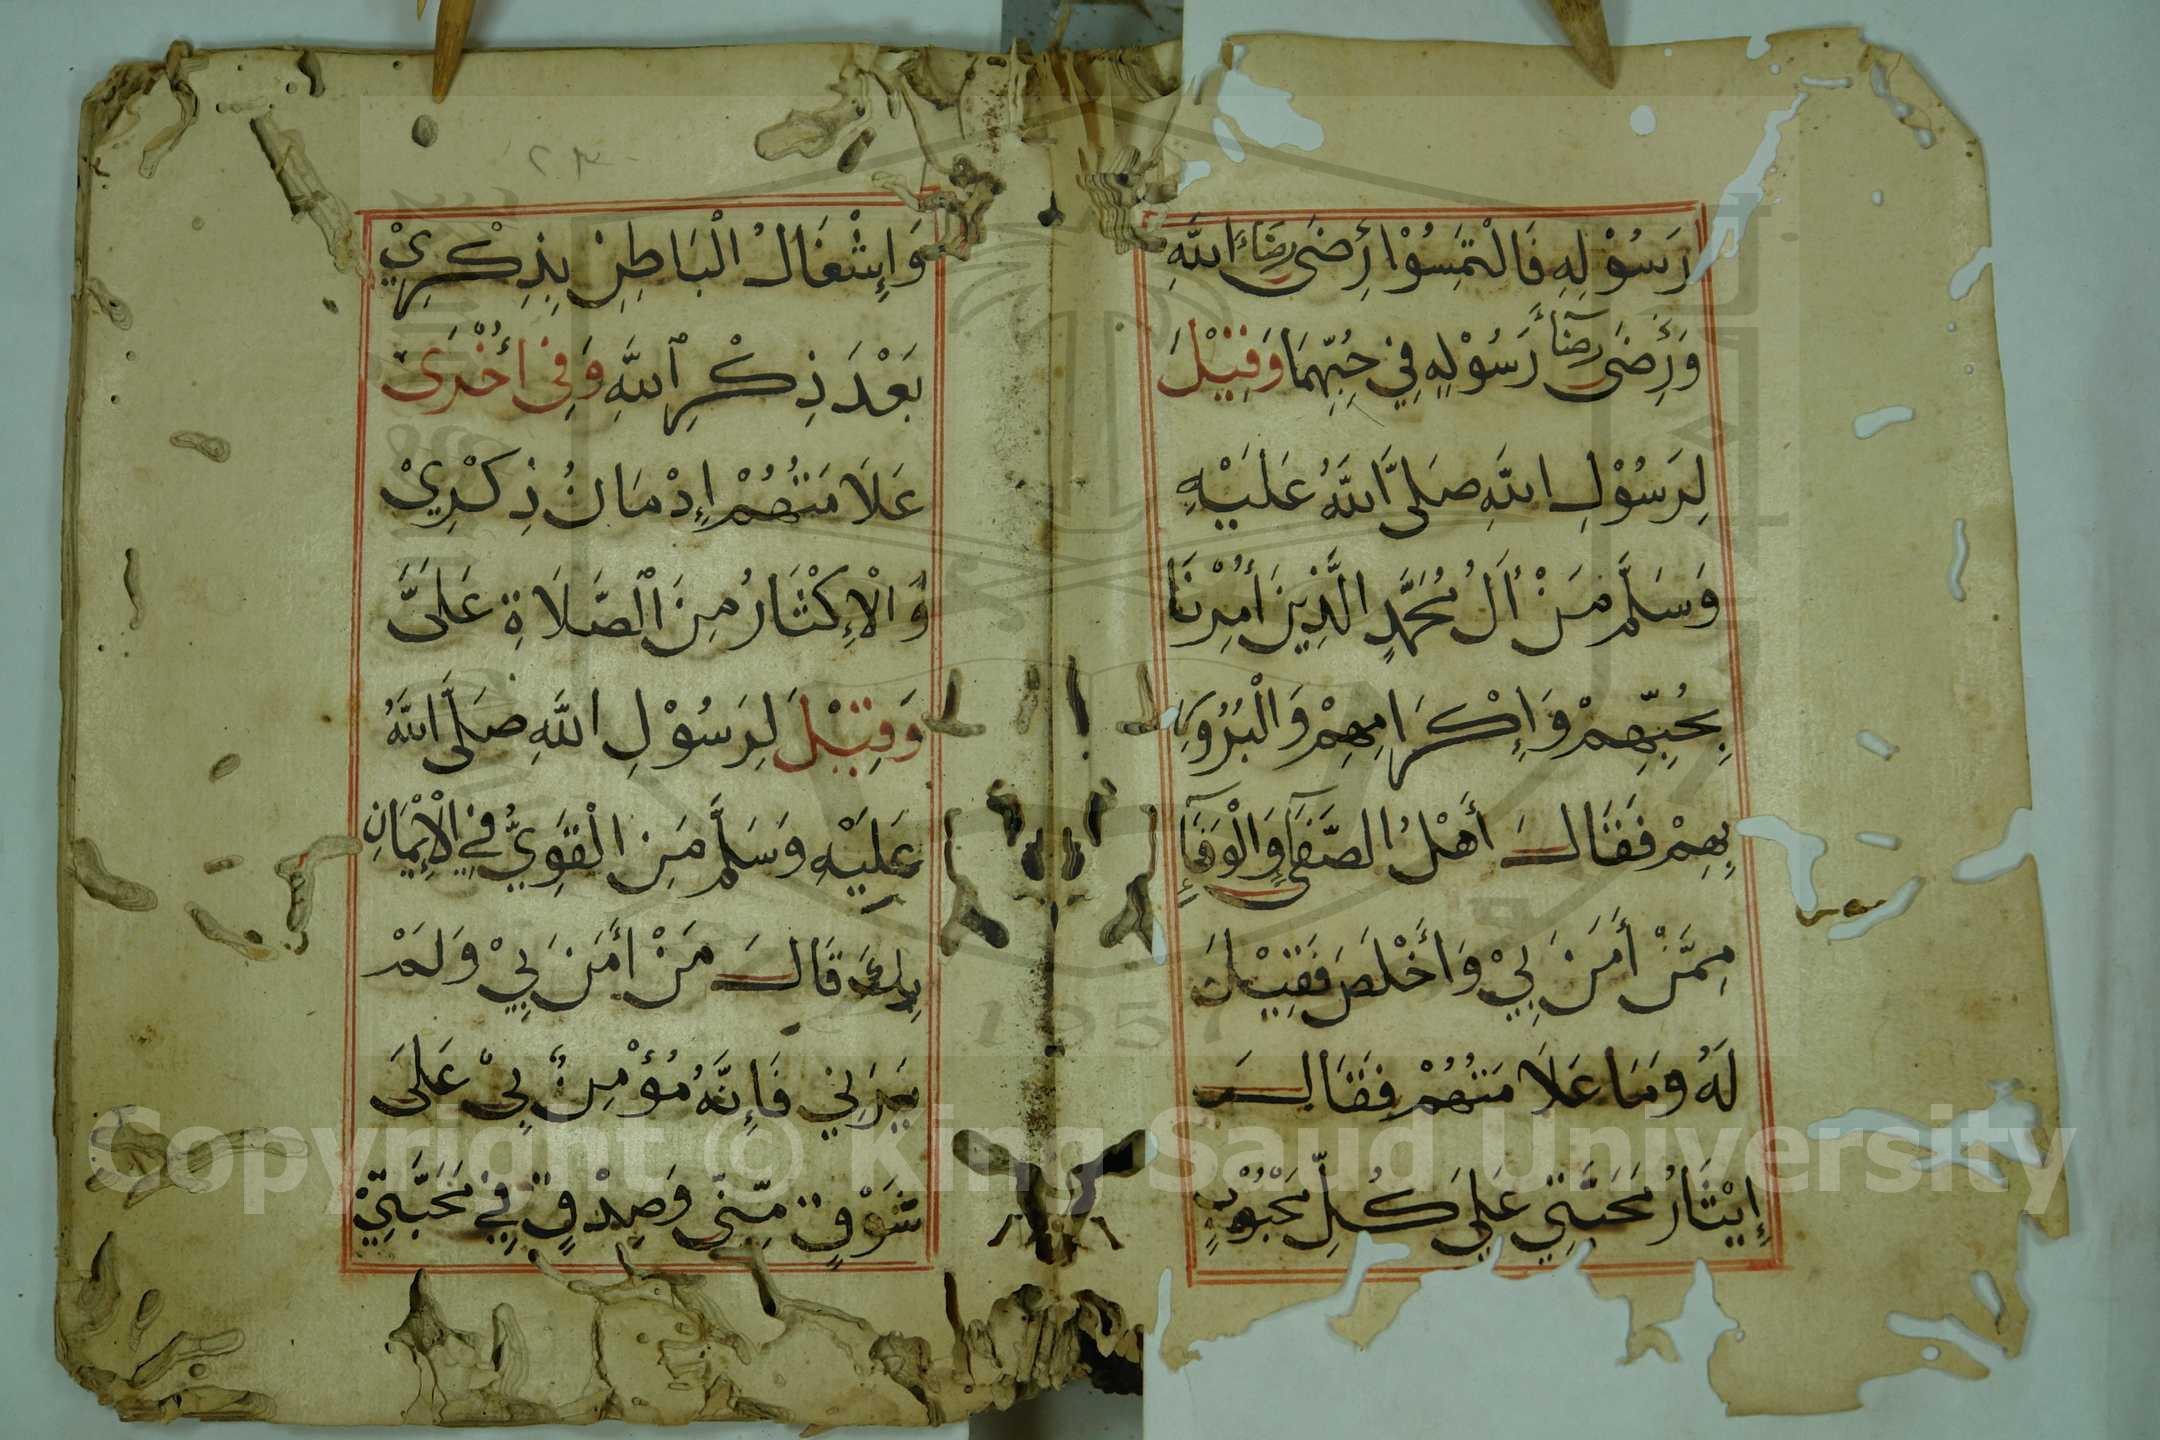 رَسُوْلِهِ فَالْتَمِسُوْا رِضَى رِضَاءَ اللهِ
وَرِضَى رِضَآءَ رَسُوْلِهِ فِيْ حُبِّهِمَا وَقِيْلَ
لِرَسُوْلِ اللهِ صَلَّى اللهُ عَلَيْهِ
وَسَلَّمَ مَنْ أَلُ مُحَمَّدٍ الَّذِيْنَ أُمِرْنَا
بِحُبِّهِمْ وَإِكْرَامِهِمْ وَالْبُرُوْرِ
بِهِمْ فَقَالَ أَهْلُ الصَّفَآءِ وَالْوَفَآءِ
مِمَّنْ أَمَنَ بِيْ وَأَخْلَصَ فَقِيْلَ
لَهُ وَمَا عَلَامَتُهُمْ فَقَالَ
إِيْثَارُ مَحَبَّتِيْ عَلَى كُلِّ مَحْبُوْبٍ
٢٣
وَإِشْغَالُ الْبَاطِنِ بِذِكْرِيْ
بَعْدَ ذِكْرِ اللهِ وَفِيْ أُخْرَى
عَلَامَتُهُمْ إِدْمَانُ ذِكْرِيْ
وَالْإِكْثَارُ مِنَ الصَّلَاةِ عَلَيَّ
وَقِيْلَ لِرَسُوْلِ اللهِ صَلَّى اللهُ
عَلَيْهِ وَسَلَّمَ مَنِ الْقَوِيُّ فِيْ الْإِيْمَانِ
بِكَ قَالَ مَنْ أَمَنَ بِيْ وَلَمْ
يَرَنِيْ فَإِنَّهُ مُؤْمِنٌ بِيْ عَلَى
شَوْقٍ مِّنِّيْ وَصِدْقٍ فِيْ مَحَبَّتِيْ
1957
Copyright © King Saud University